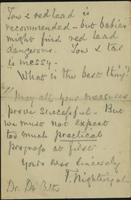 Tow & red lead is
recommended - but babies
might find red lead
dangerous. Tow & tar
is messy.
"What is the best thing"?
May all your measures
prove successful. But
we must not expect
too much practical
progress at first
Yours ever sincerely
F. Nightingale
Dr. De